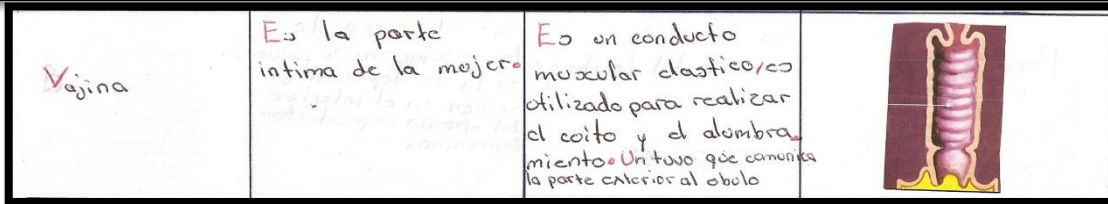 Vajina
Es la parte
intima de la mujer.
Es un conducto
muscular elastico, es
utilizado para realizar
el coito y el alombra
miento. Un tuvo que comunica
la parte exterior al obulo